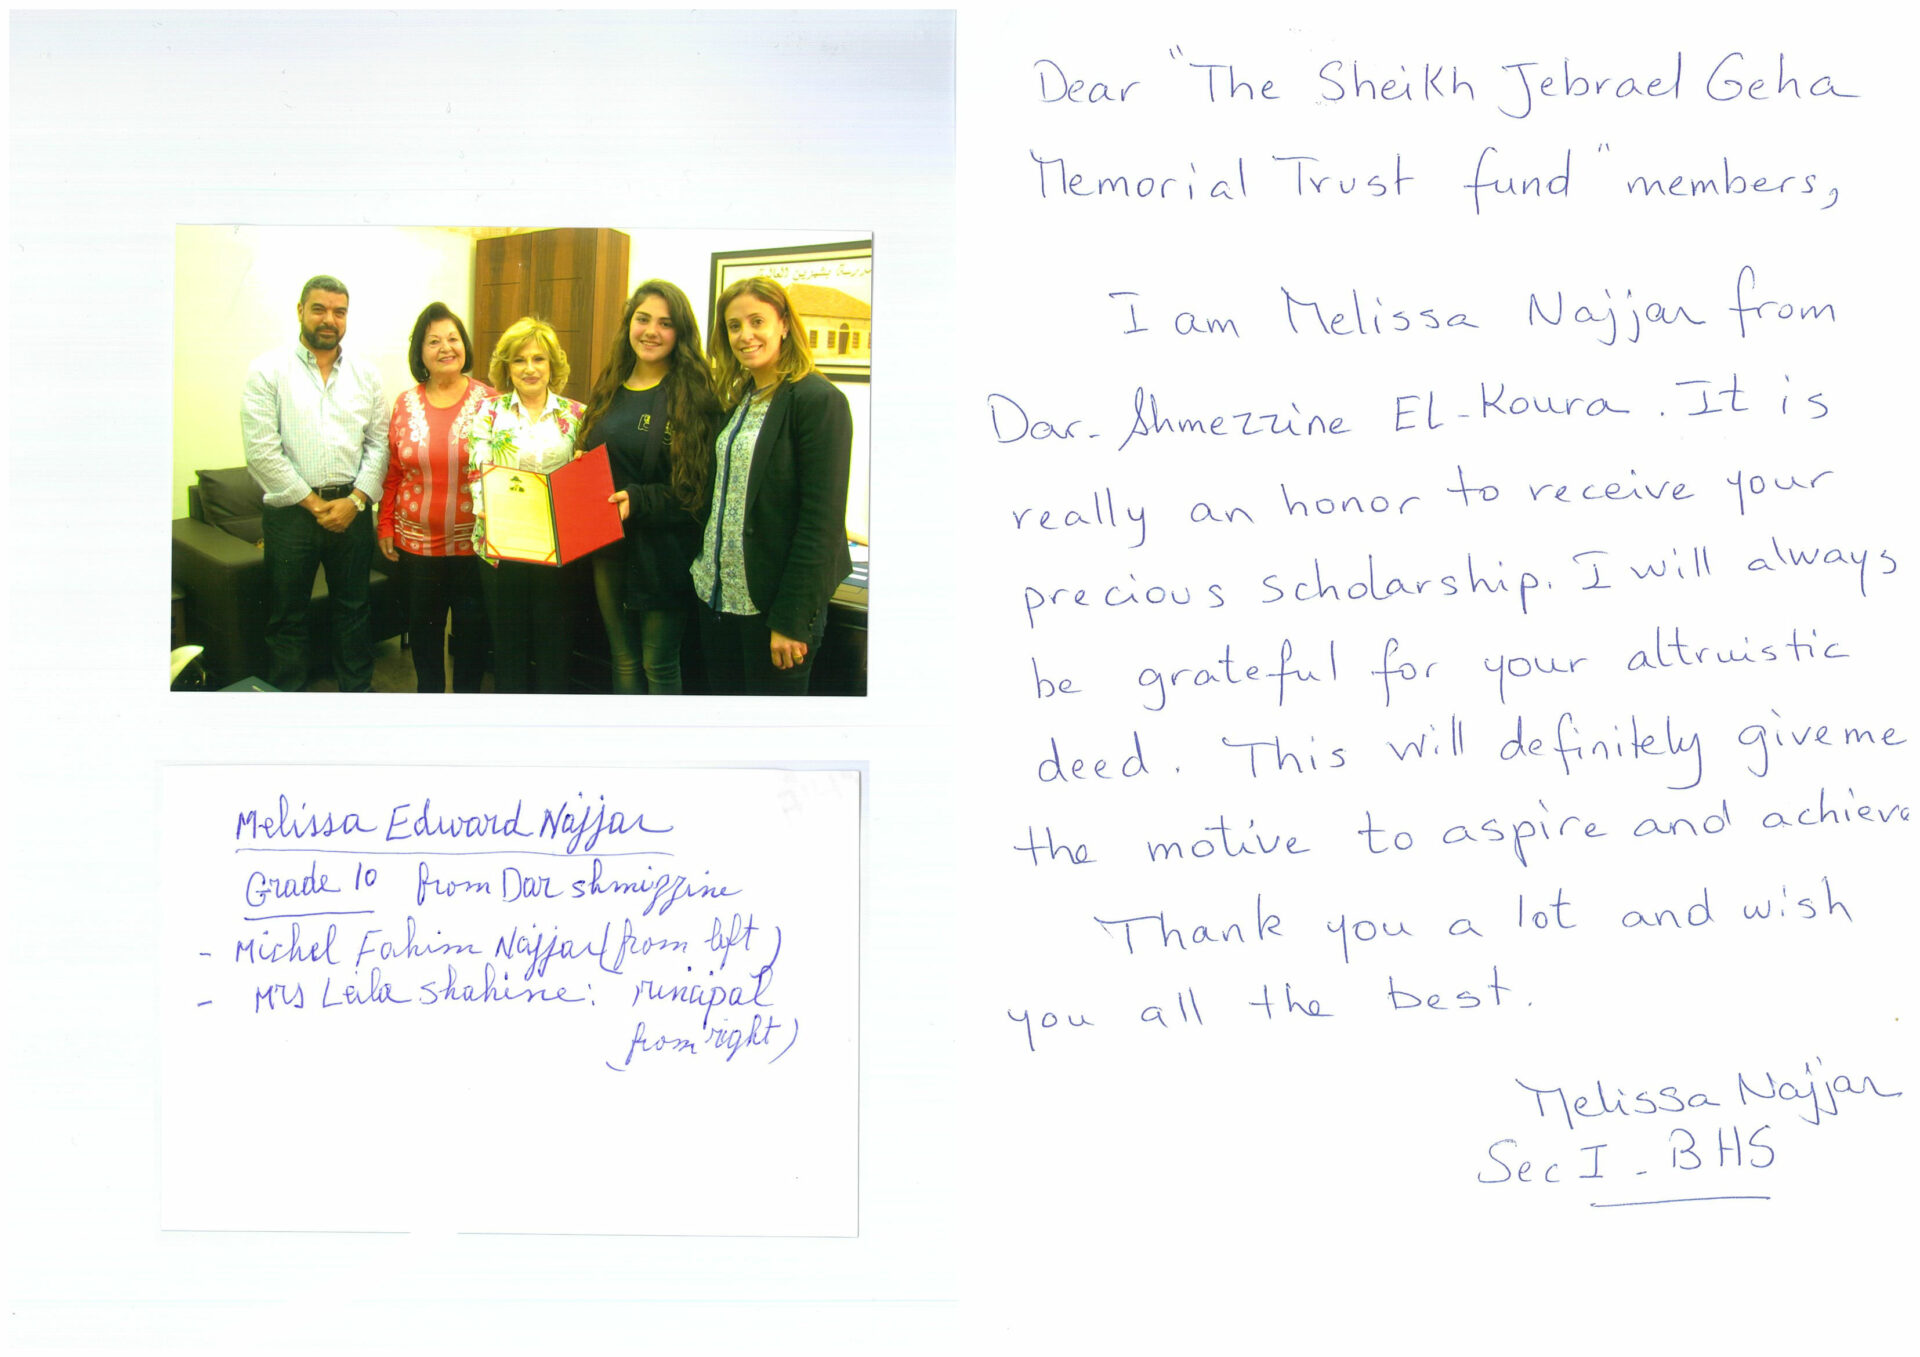 مدرسة بشمزين العالية
Melissa Edward Najjar
Grade 10 from Dar shmizzine
- Michel Fahim Najjar (from left)
- Mrs Leila Shahine: rincipal
(from right)
Dear "The Sheikh Jebrael Geha
Memorial Trust fund" members,
I am Melissa Najjar from
Dar-Shmezzine El-Koura. It is
really an honor to receive your
precious scholarship. I will always
be grateful for your altruistic
deed. This will definitely give me
the motive to aspire and achieve
Thank you a lot and wish
you all the best.
Melissa Najjar
Sec I - BHS